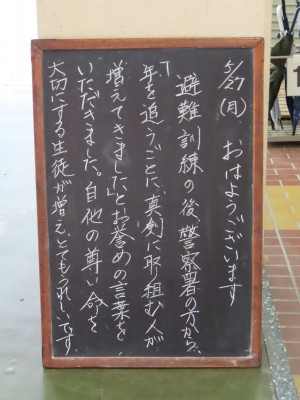 5/27(月) おはようございます
避難訓練の後、警察署の方から、
「年を追うごとに、真剣に取り組む人が
増えてきました」とお誉めの言葉を
いただきました。自他の尊い命を
大切にする生徒が増え、とてもうれしいです。